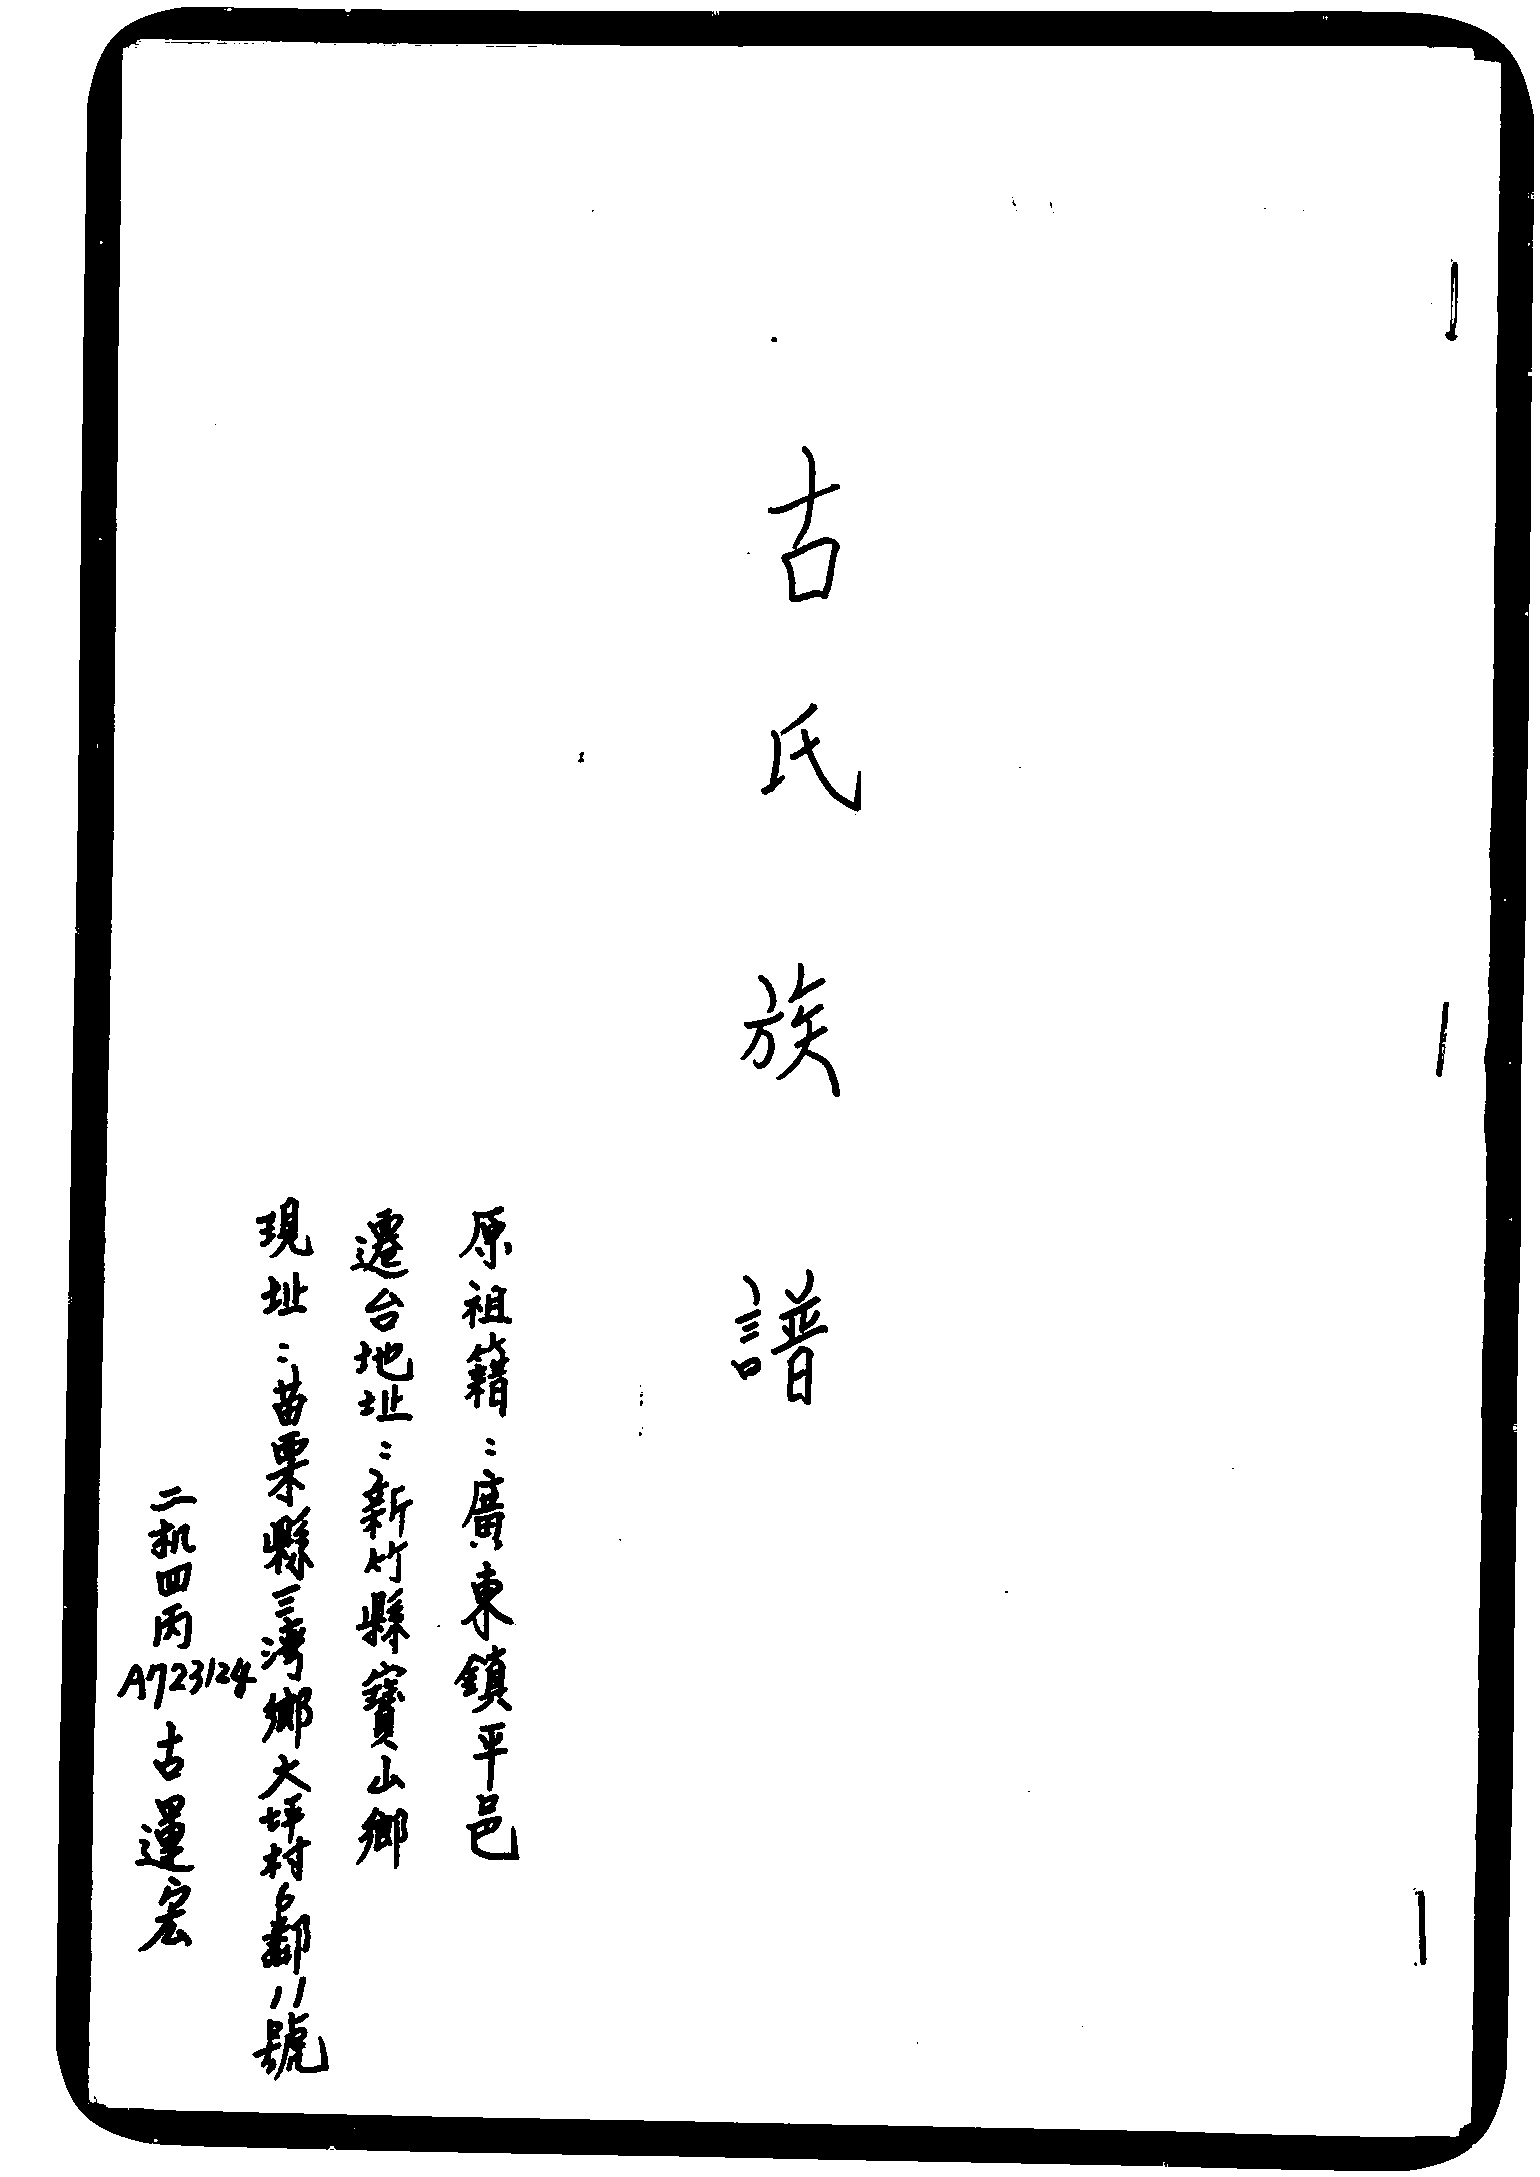 古氏族譜
原祖籍：廣東鎮平邑
遷台地址：新竹縣寶山鄉
現址：苗栗縣三灣鄉大坪村6鄰11號
二机四丙A723124古運宏